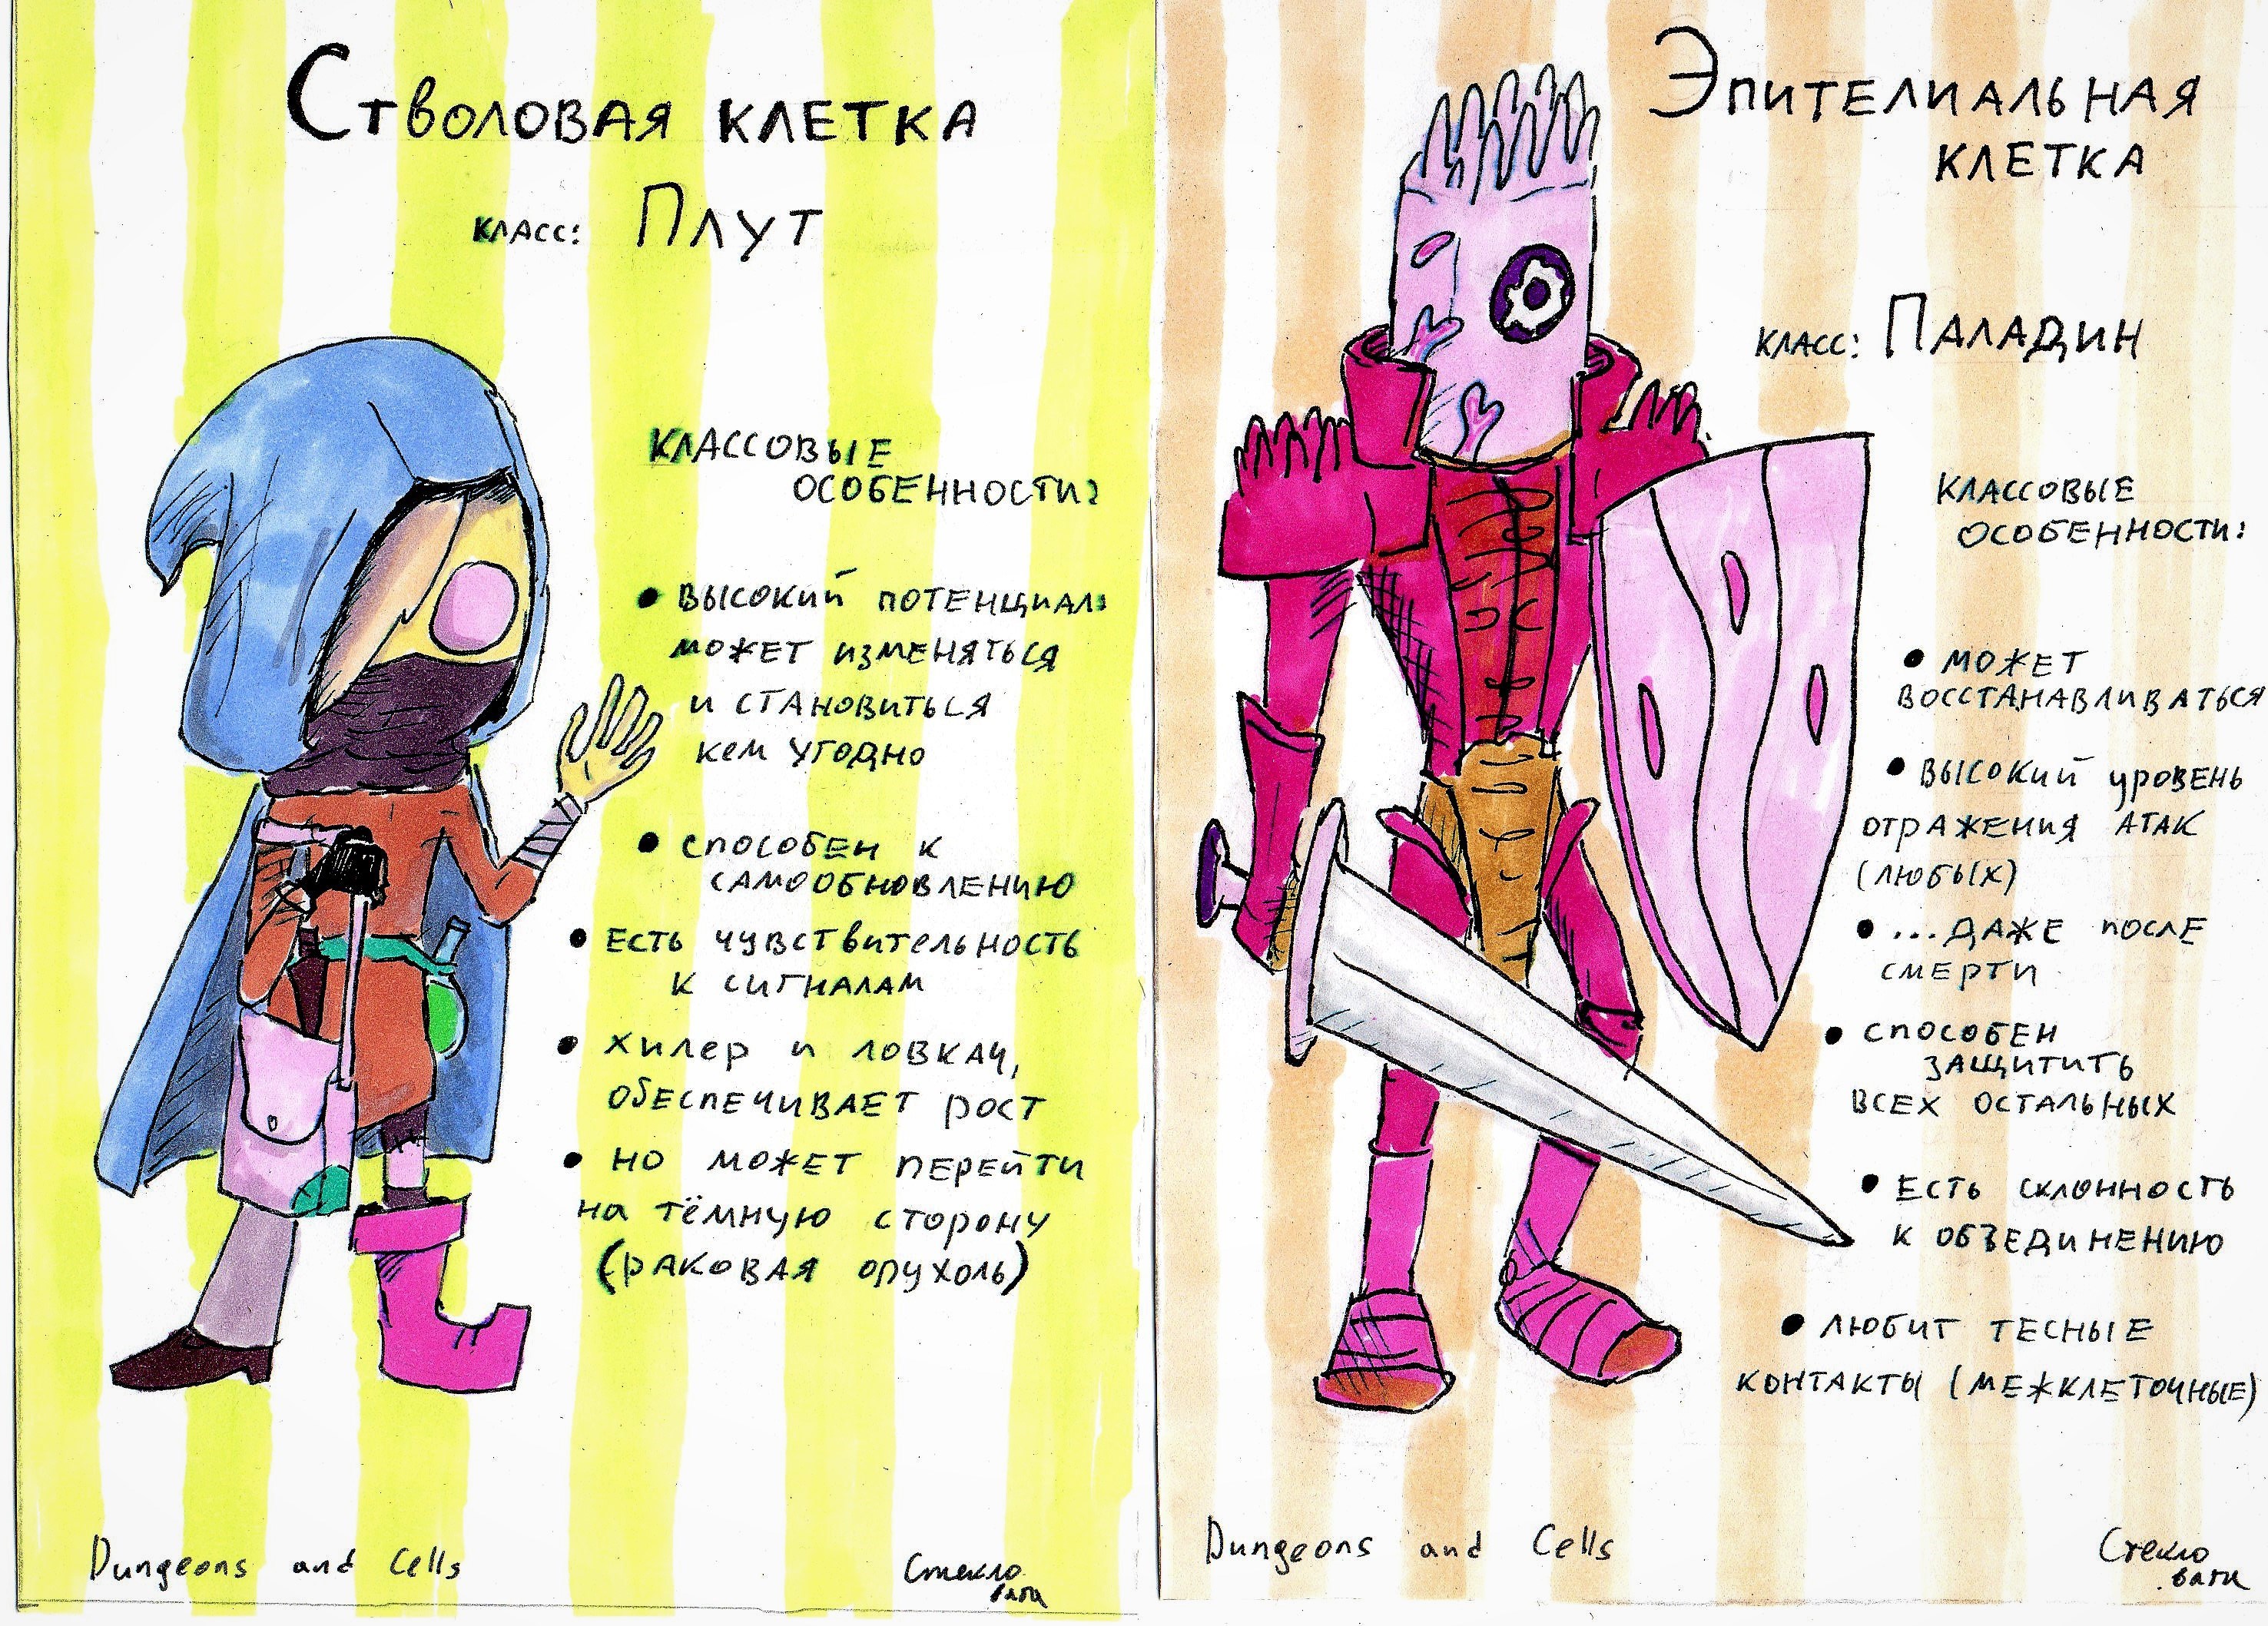 Стволовая клетка
класс: Плут
Классовые
особенности:
• высокий потенциал:
может изменяться
и становиться
кем угодно
• способен к
самообновлению
• есть чувствительность
к сигналам
• хилер и ловкач,
обеспечивает рост
• но может перейти
на тёмную сторону
(раковая опухоль)
Dungeons and Cells
Стекло
вата
Эпителиальная
клетка
класс: Паладин
Классовые
особенности:
• может
восстанавливаться
• высокий уровень
отражения атак
(любых)
• ...даже после
смерти
• способен
защитить
всех остальных
• есть склонность
к объединению
• любит тесные
контакты (межклеточные)
Dungeons and Cells
Стекло
вата